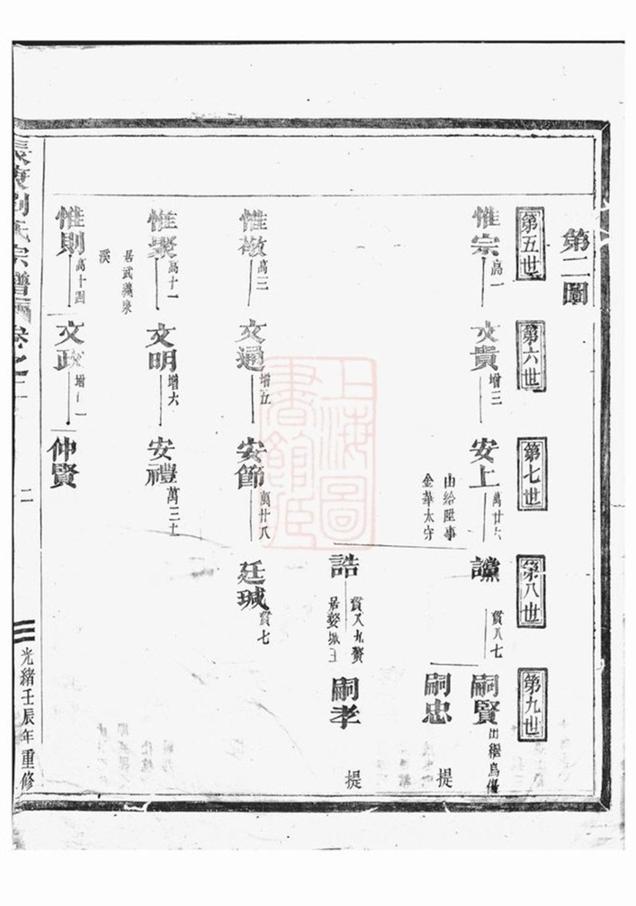 第二圖
第五世
第六世
第七世
第八世
第九世
惟宗
萬一
文貴
增三
安上
萬廿六
由給陞事
金華太守
讜
貫八七
嗣賢
出繼烏傷
嗣忠
提
誥
貫八九贅
居婺城王
嗣孝
提
惟敬
萬三
文通
增五
安節
萬廿八
廷瑊
貫七
惟聚
萬十一
居武義泉
溪
文明
增六
安禮
萬三十
惟則
萬十四
文政
增十一
仲賢
劉氏宗譜
卷之二
二
光緒壬辰年重修
上海圖
書館藏